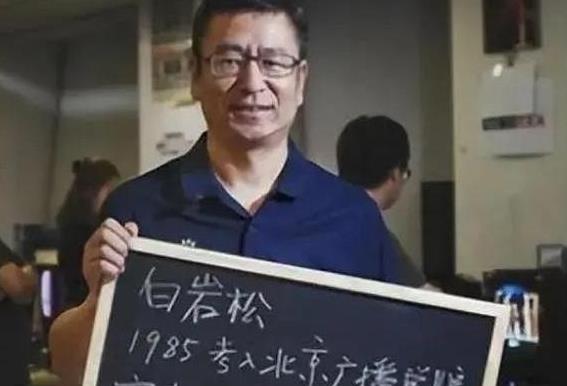 白岩松
1985考入北京广播学院